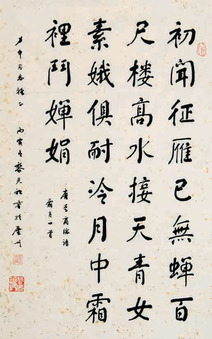 初聞征雁已無蟬百
尺樓高水接天青女
素娥俱耐冷月中霜
裡鬥嬋娟
唐李商隱詩
霜月一首